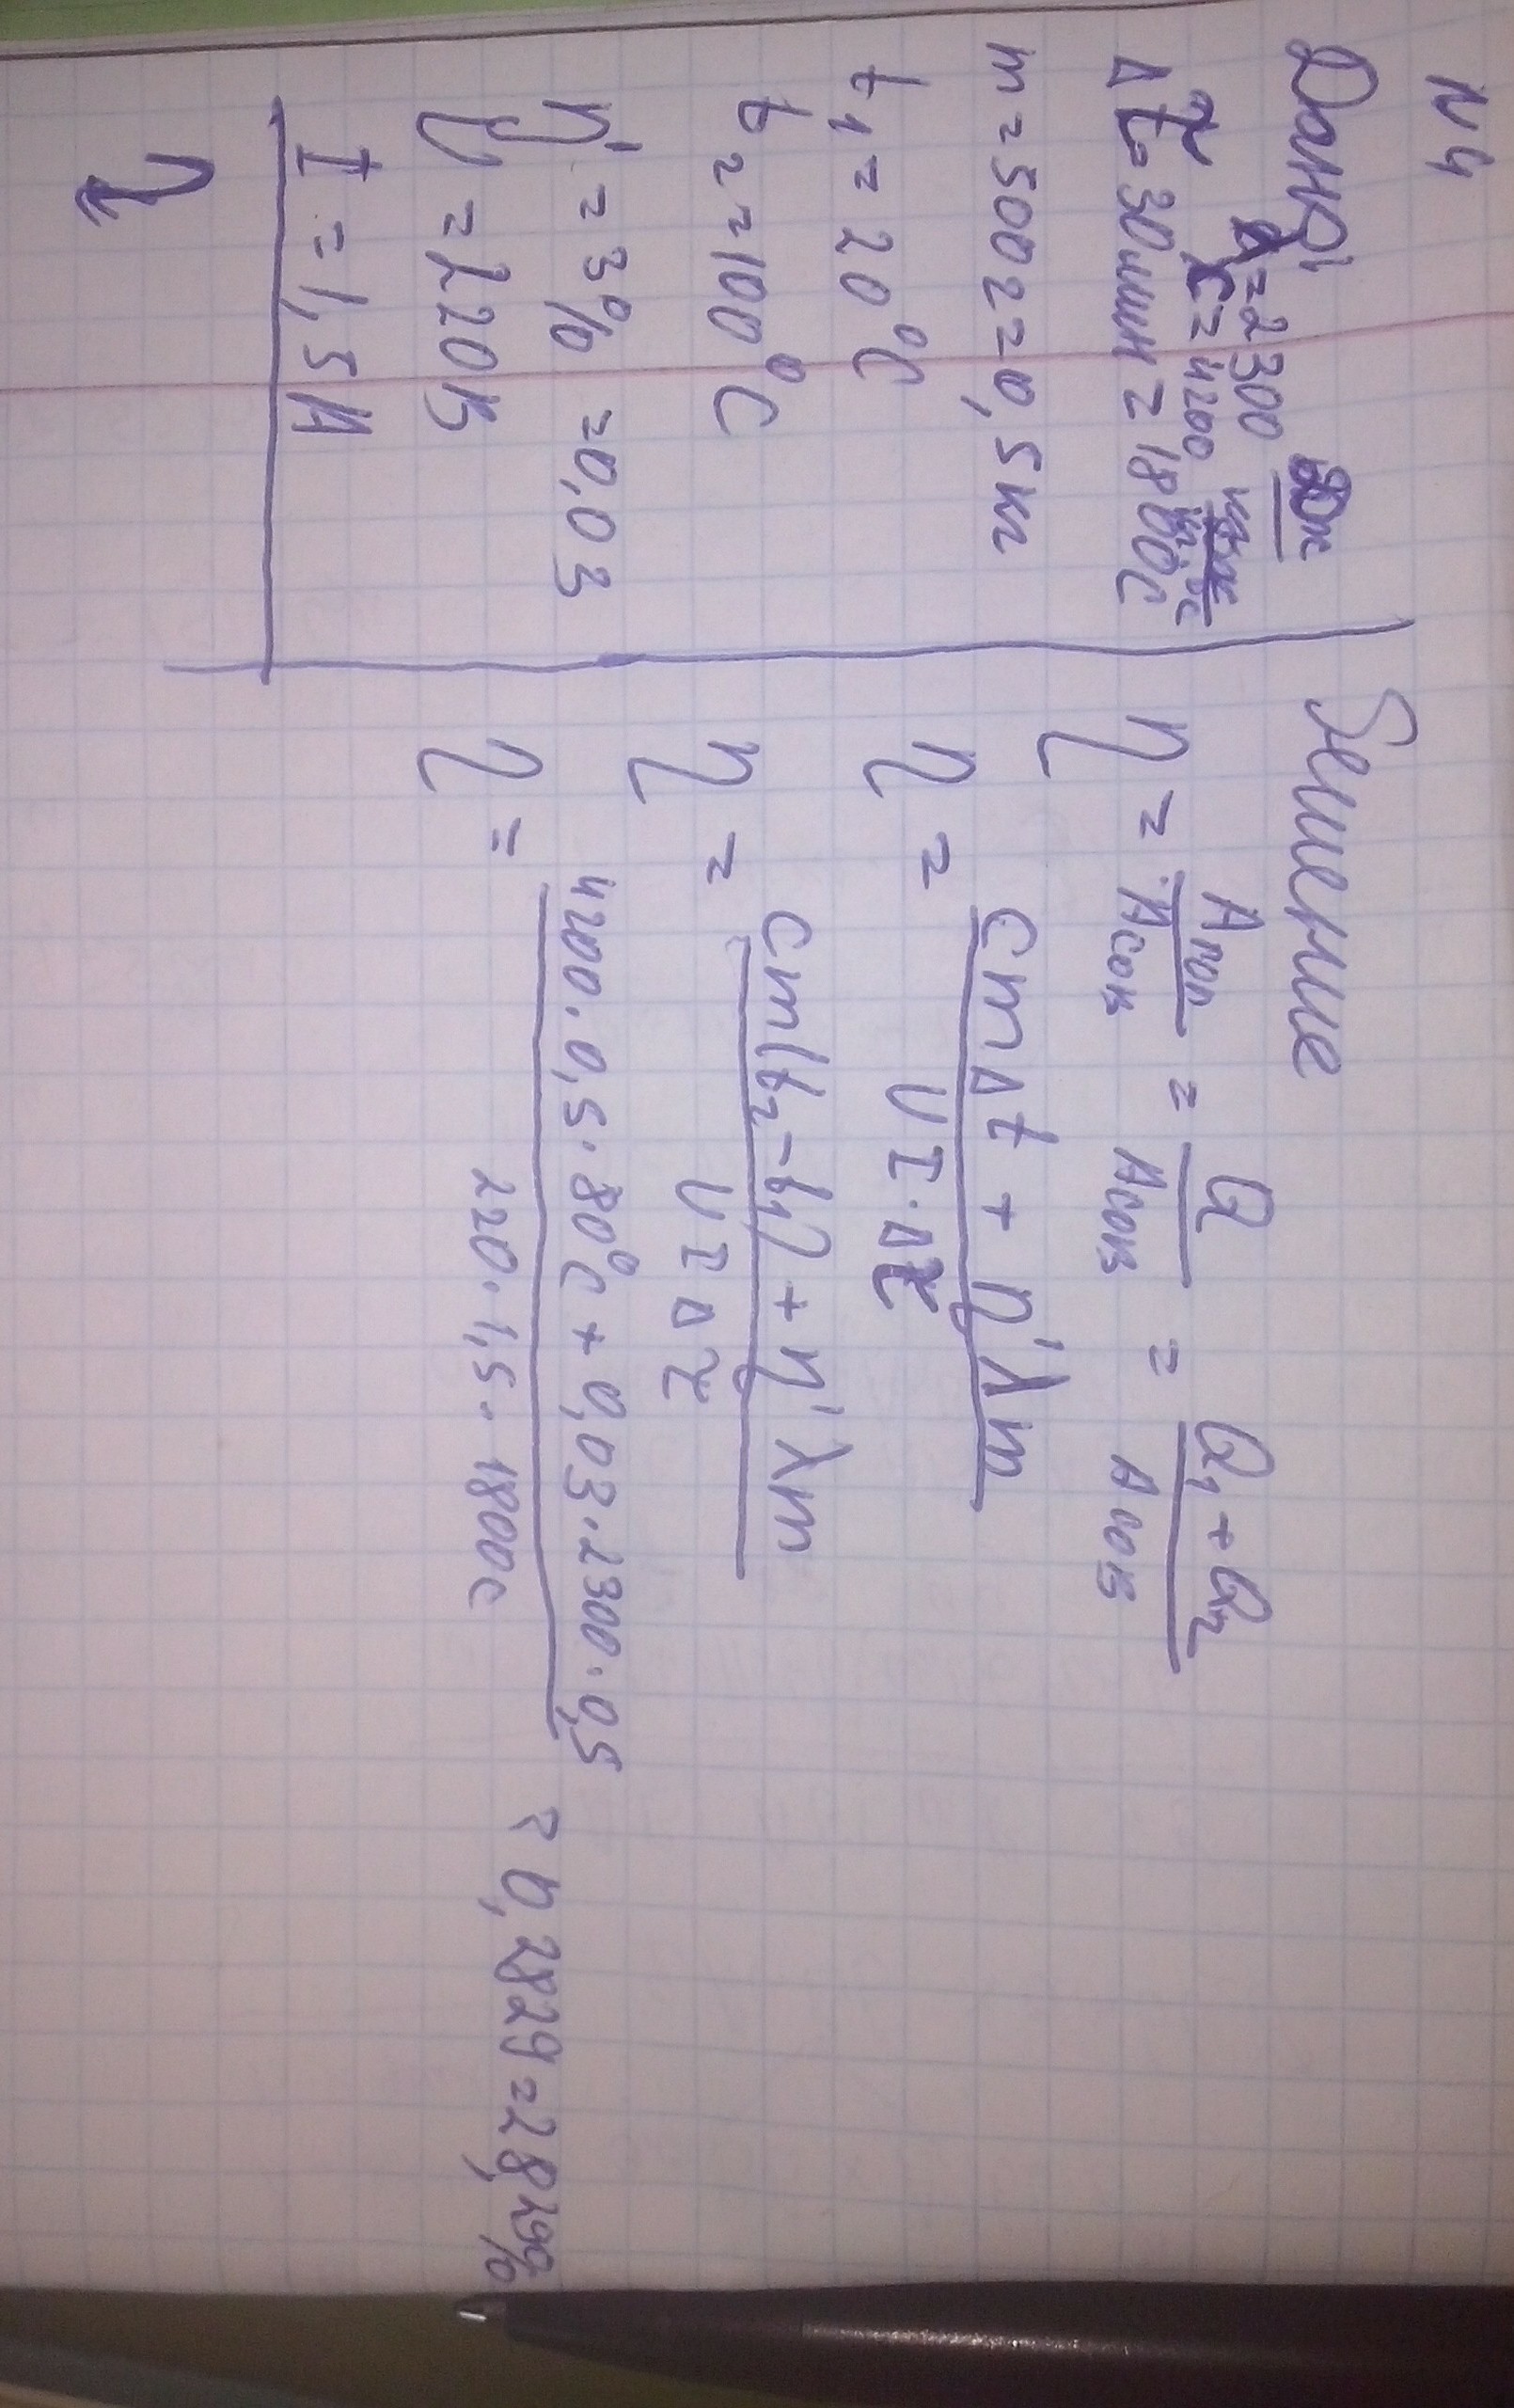 N4
Данні
λ = 2300
c = 4200
Δτ = 30мин = 1800с
m = 500г = 0,5кг
t1 = 20°C
t2 = 100°C
η' = 3% = 0,03
U = 220В
I = 1,5А
η
Решение
η = Aпол/Aсов = Q/Aсов = Q1+Q2/Aсов
η = cmΔt + η'λm / UI·Δτ
η = cm(t2-t1) + η'λm / UIΔτ
η = 4200·0,5·80°C + 0,03·2300·0,5 / 220·1,5·1800с = 0,2829 = 28,29%